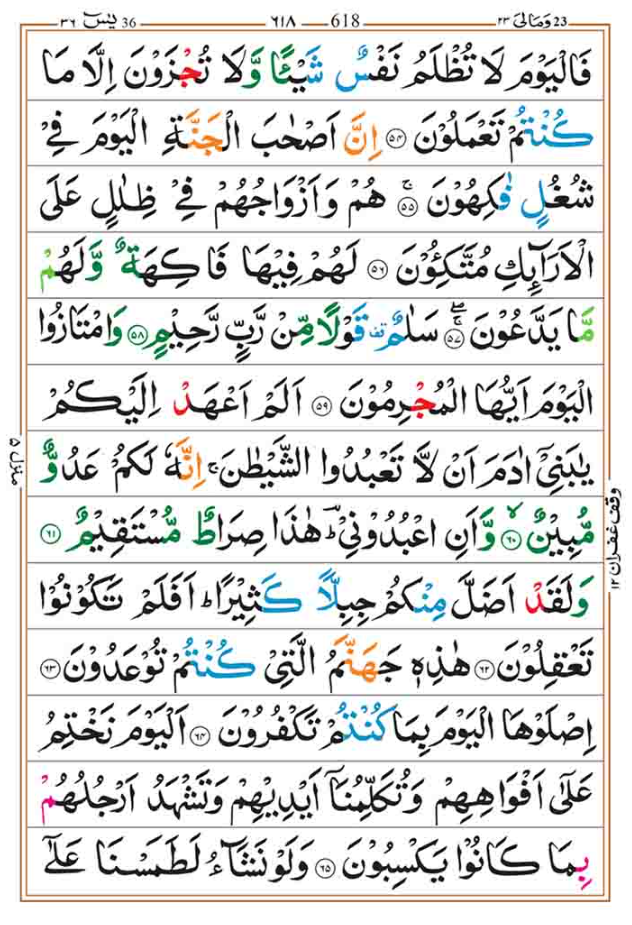 يٰسٓ 36 ٣٦ 618 ٦١٨ 23 وَمَالِیَ ٢٣
فَالْيَوْمَ لَا تُظْلَمُ نَفْسٌ شَيْـًٔا وَّلَا تُجْزَوْنَ اِلَّا مَا
كُنْتُمْ تَعْمَلُوْنَ ﴿٥٤﴾ اِنَّ اَصْحٰبَ الْجَنَّةِ الْيَوْمَ فِيْ
شُغُلٍ فٰكِهُوْنَ ﴿٥٥﴾ۚ هُمْ وَاَزْوَاجُهُمْ فِيْ ظِلٰلٍ عَلَى
الْاَرَآئِكِ مُتَّكِـُٔوْنَ ﴿٥٦﴾ لَهُمْ فِيْهَا فَاكِهَةٌ وَّلَهُمْ
مَّا يَدَّعُوْنَ ﴿٥٧﴾ۚۖ سَلٰمٌ قف قَوْلًا مِّنْ رَّبٍّ رَّحِيْمٍ ﴿٥٨﴾ وَامْتَازُوا
الْيَوْمَ اَيُّهَا الْمُجْرِمُوْنَ ﴿٥٩﴾ اَلَمْ اَعْهَدْ اِلَيْكُمْ
يٰبَنِيْٓ اٰدَمَ اَنْ لَّا تَعْبُدُوا الشَّيْطٰنَ ۚ اِنَّهٗ لَكُمْ عَدُوٌّ
مُّبِيْنٌ ﴿٦٠﴾ۙ وَّاَنِ اعْبُدُوْنِيْ ؔؕ هٰذَا صِرَاطٌ مُّسْتَقِيْمٌ ﴿٦١﴾
وَلَقَدْ اَضَلَّ مِنْكُمْ جِبِلًّا كَثِيْرًا ؕ اَفَلَمْ تَكُوْنُوْا
تَعْقِلُوْنَ ﴿٦٢﴾ هٰذِهٖ جَهَنَّمُ الَّتِيْ كُنْتُمْ تُوْعَدُوْنَ ﴿٦٣﴾
اِصْلَوْهَا الْيَوْمَ بِمَا كُنْتُمْ تَكْفُرُوْنَ ﴿٦٤﴾ اَلْيَوْمَ نَخْتِمُ
عَلٰٓى اَفْوَاهِهِمْ وَتُكَلِّمُنَآ اَيْدِيْهِمْ وَتَشْهَدُ اَرْجُلُهُمْ
بِمَا كَانُوْا يَكْسِبُوْنَ ﴿٦٥﴾ وَلَوْ نَشَآءُ لَطَمَسْنَا عَلٰٓى
منزل ٥
وقف غفران ١٢